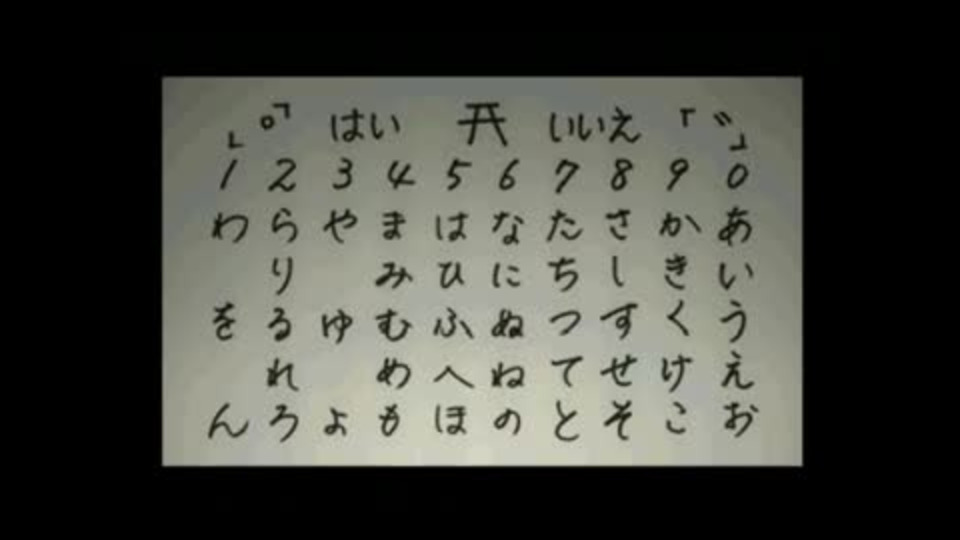 「゜」 はい ⛩ いいえ 「゛」
1 2 3 4 5 6 7 8 9 0
わ ら や ま は な た さ か あ
り み ひ に ち し き い
を る ゆ む ふ ぬ つ す く う
れ め へ ね て せ け え
ん ろ よ も ほ の と そ こ お